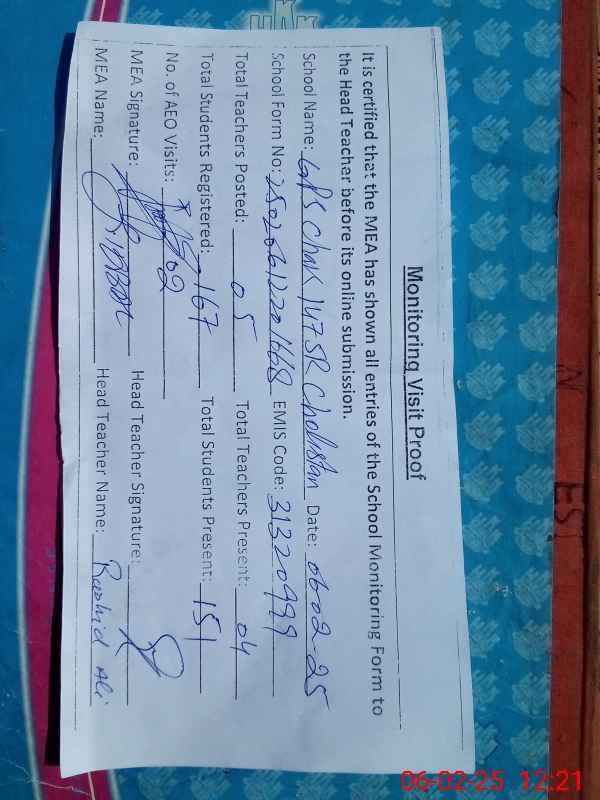 Monitoring Visit Proof
It is certified that the MEA has shown all entries of the School Monitoring Form to
the Head Teacher before its online submission.
School Name: GPS Chak 147 SR Cholistan Date: 06-02-25
School Form No: EMIS Code: 31320499
Total Teachers Posted: 05 Total Teachers Present: 04
Total Students Registered: 167 Total Students Present: 151
No. of AEO Visits: 02
MEA Signature: Head Teacher Signature:
MEA Name: Head Teacher Name: Rashid Ali
06-02-25 12:21